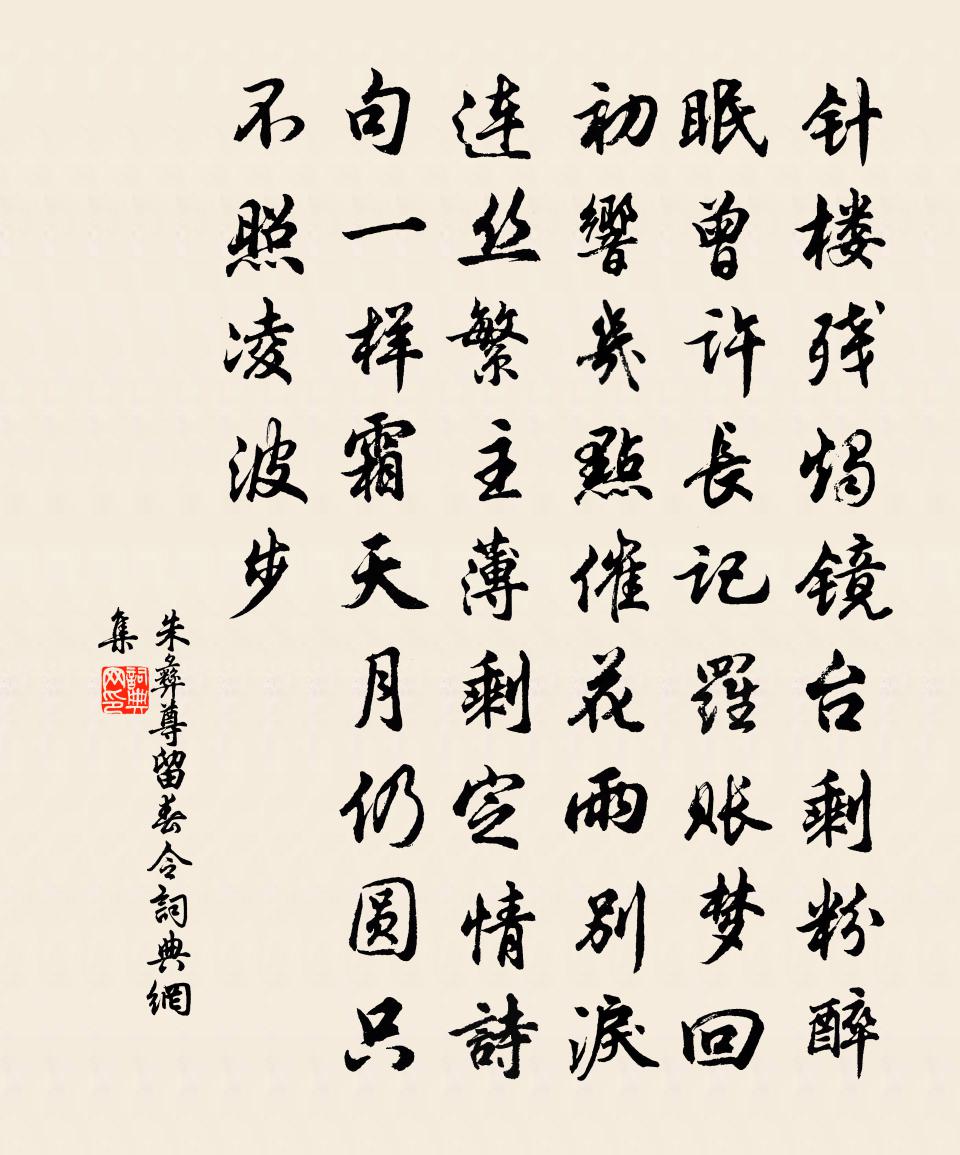 针楼残烛镜台剩粉醉
眠曾许長记羅账梦回
初響幾點催花雨別淚
连丝繁主薄剩定情詩
句一样霜天月仍圆只
不照凌波步
朱彝尊留春令詞典網
集
詞典網印